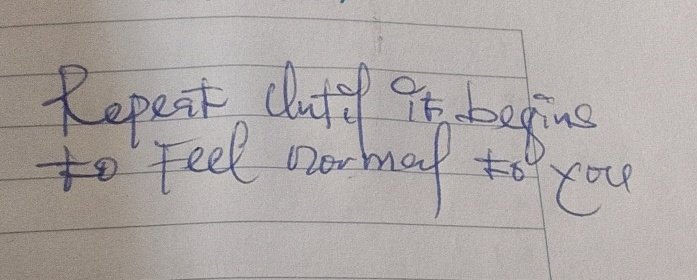 Repeat Until it begins
to Feel normal to you